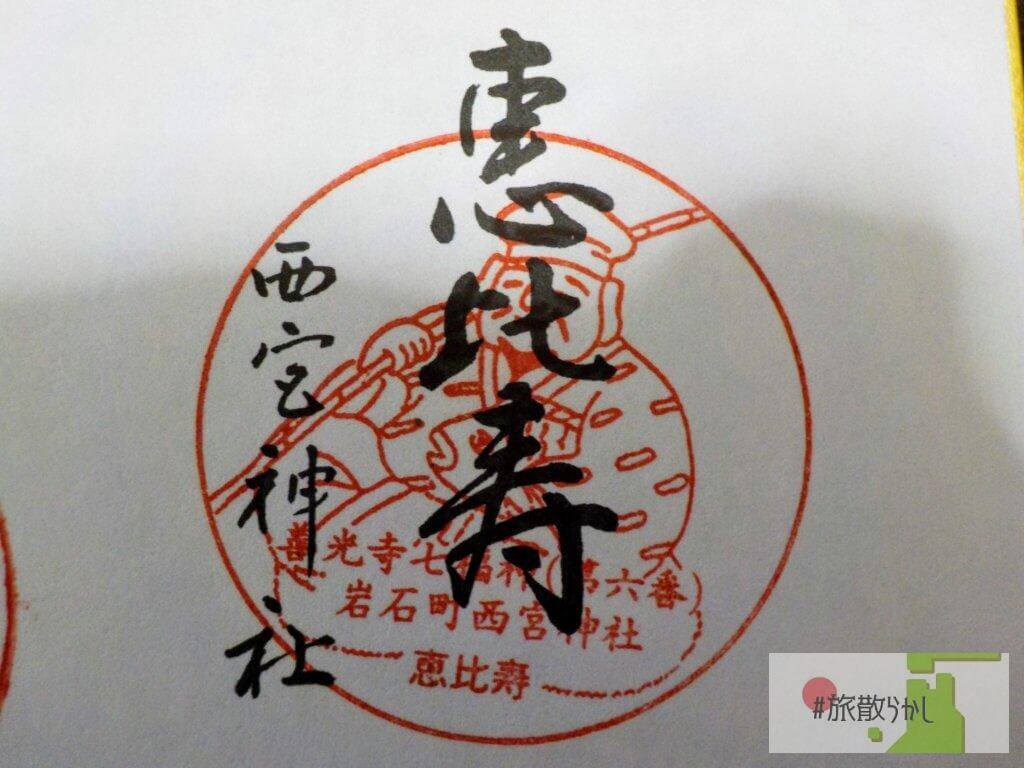 恵比寿
西宮神社
善光寺七福神(第六番)
岩石町西宮神社
恵比寿
#旅散らかし